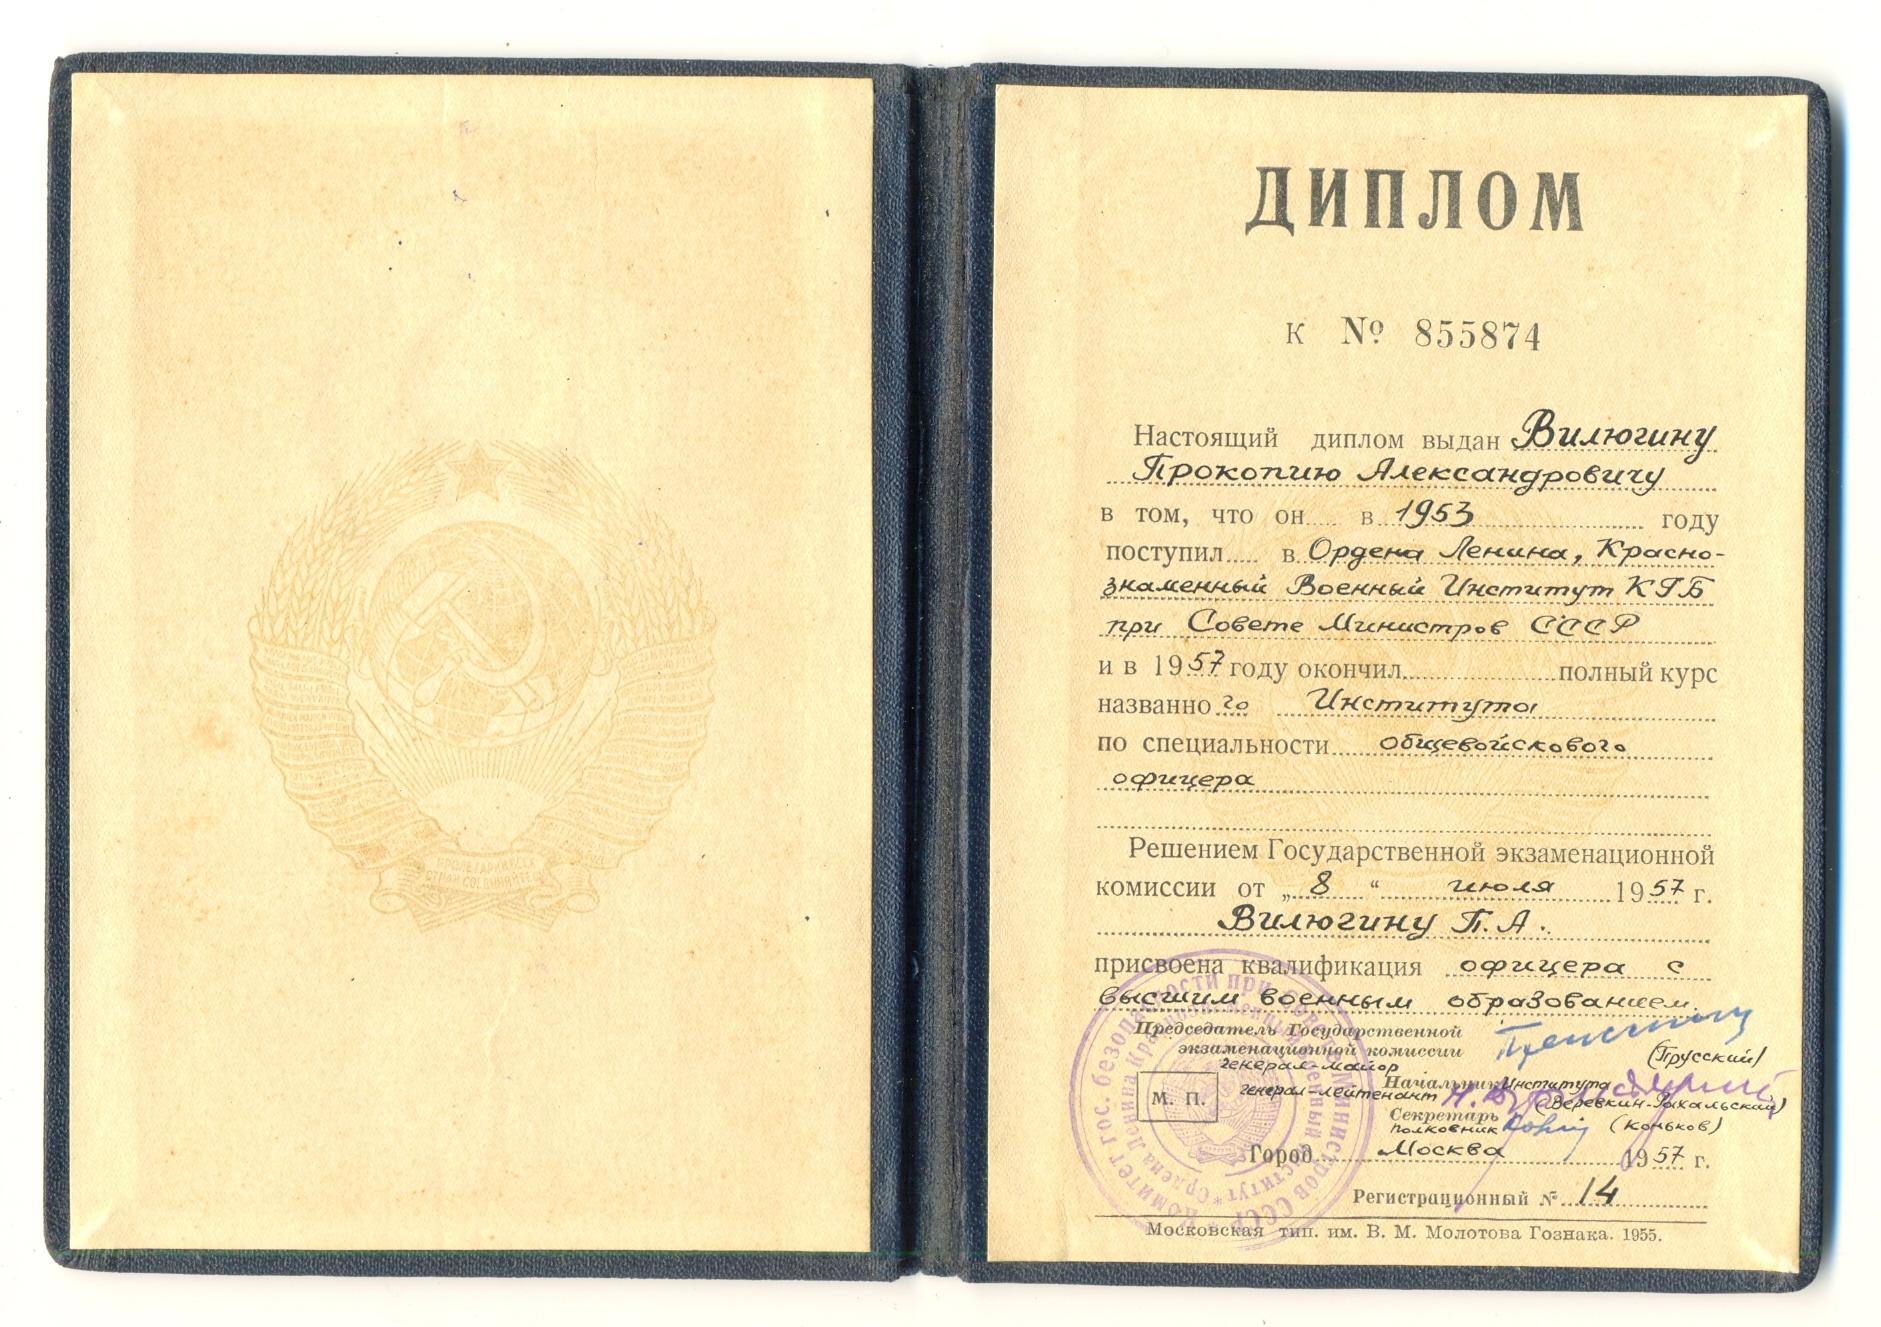 ДИПЛОМ
К № 855874
Настоящий диплом выдан Вилюгину
Прокопию Александровичу
в том, что он в 1953 году
поступил в Ордена Ленина, Красно-
знаменный Военный Институт КГБ
при Совете Министров СССР
и в 1957 году окончил полный курс
названного Института
по специальности общевойскового
офицера
Решением Государственной экзаменационной
комиссии от „8“ июля 1957 г.
Вилюгину П. А.
присвоена квалификация офицера с
высшим военным образованием.
Председатель Государственной
экзаменационной комиссии
генерал-майор (Прусский)
Начальник Института
генерал-лейтенант (Веревкин-Рахальский)
Секретарь
полковник (Коньков)
М. П.
Город Москва 1957 г.
Регистрационный № 14
Московская тип. им. В. М. Молотова Гознака. 1955.
Комитет гос. безопасности при Совете Министров СССР
Ордена Ленина Краснознаменный Военный Институт